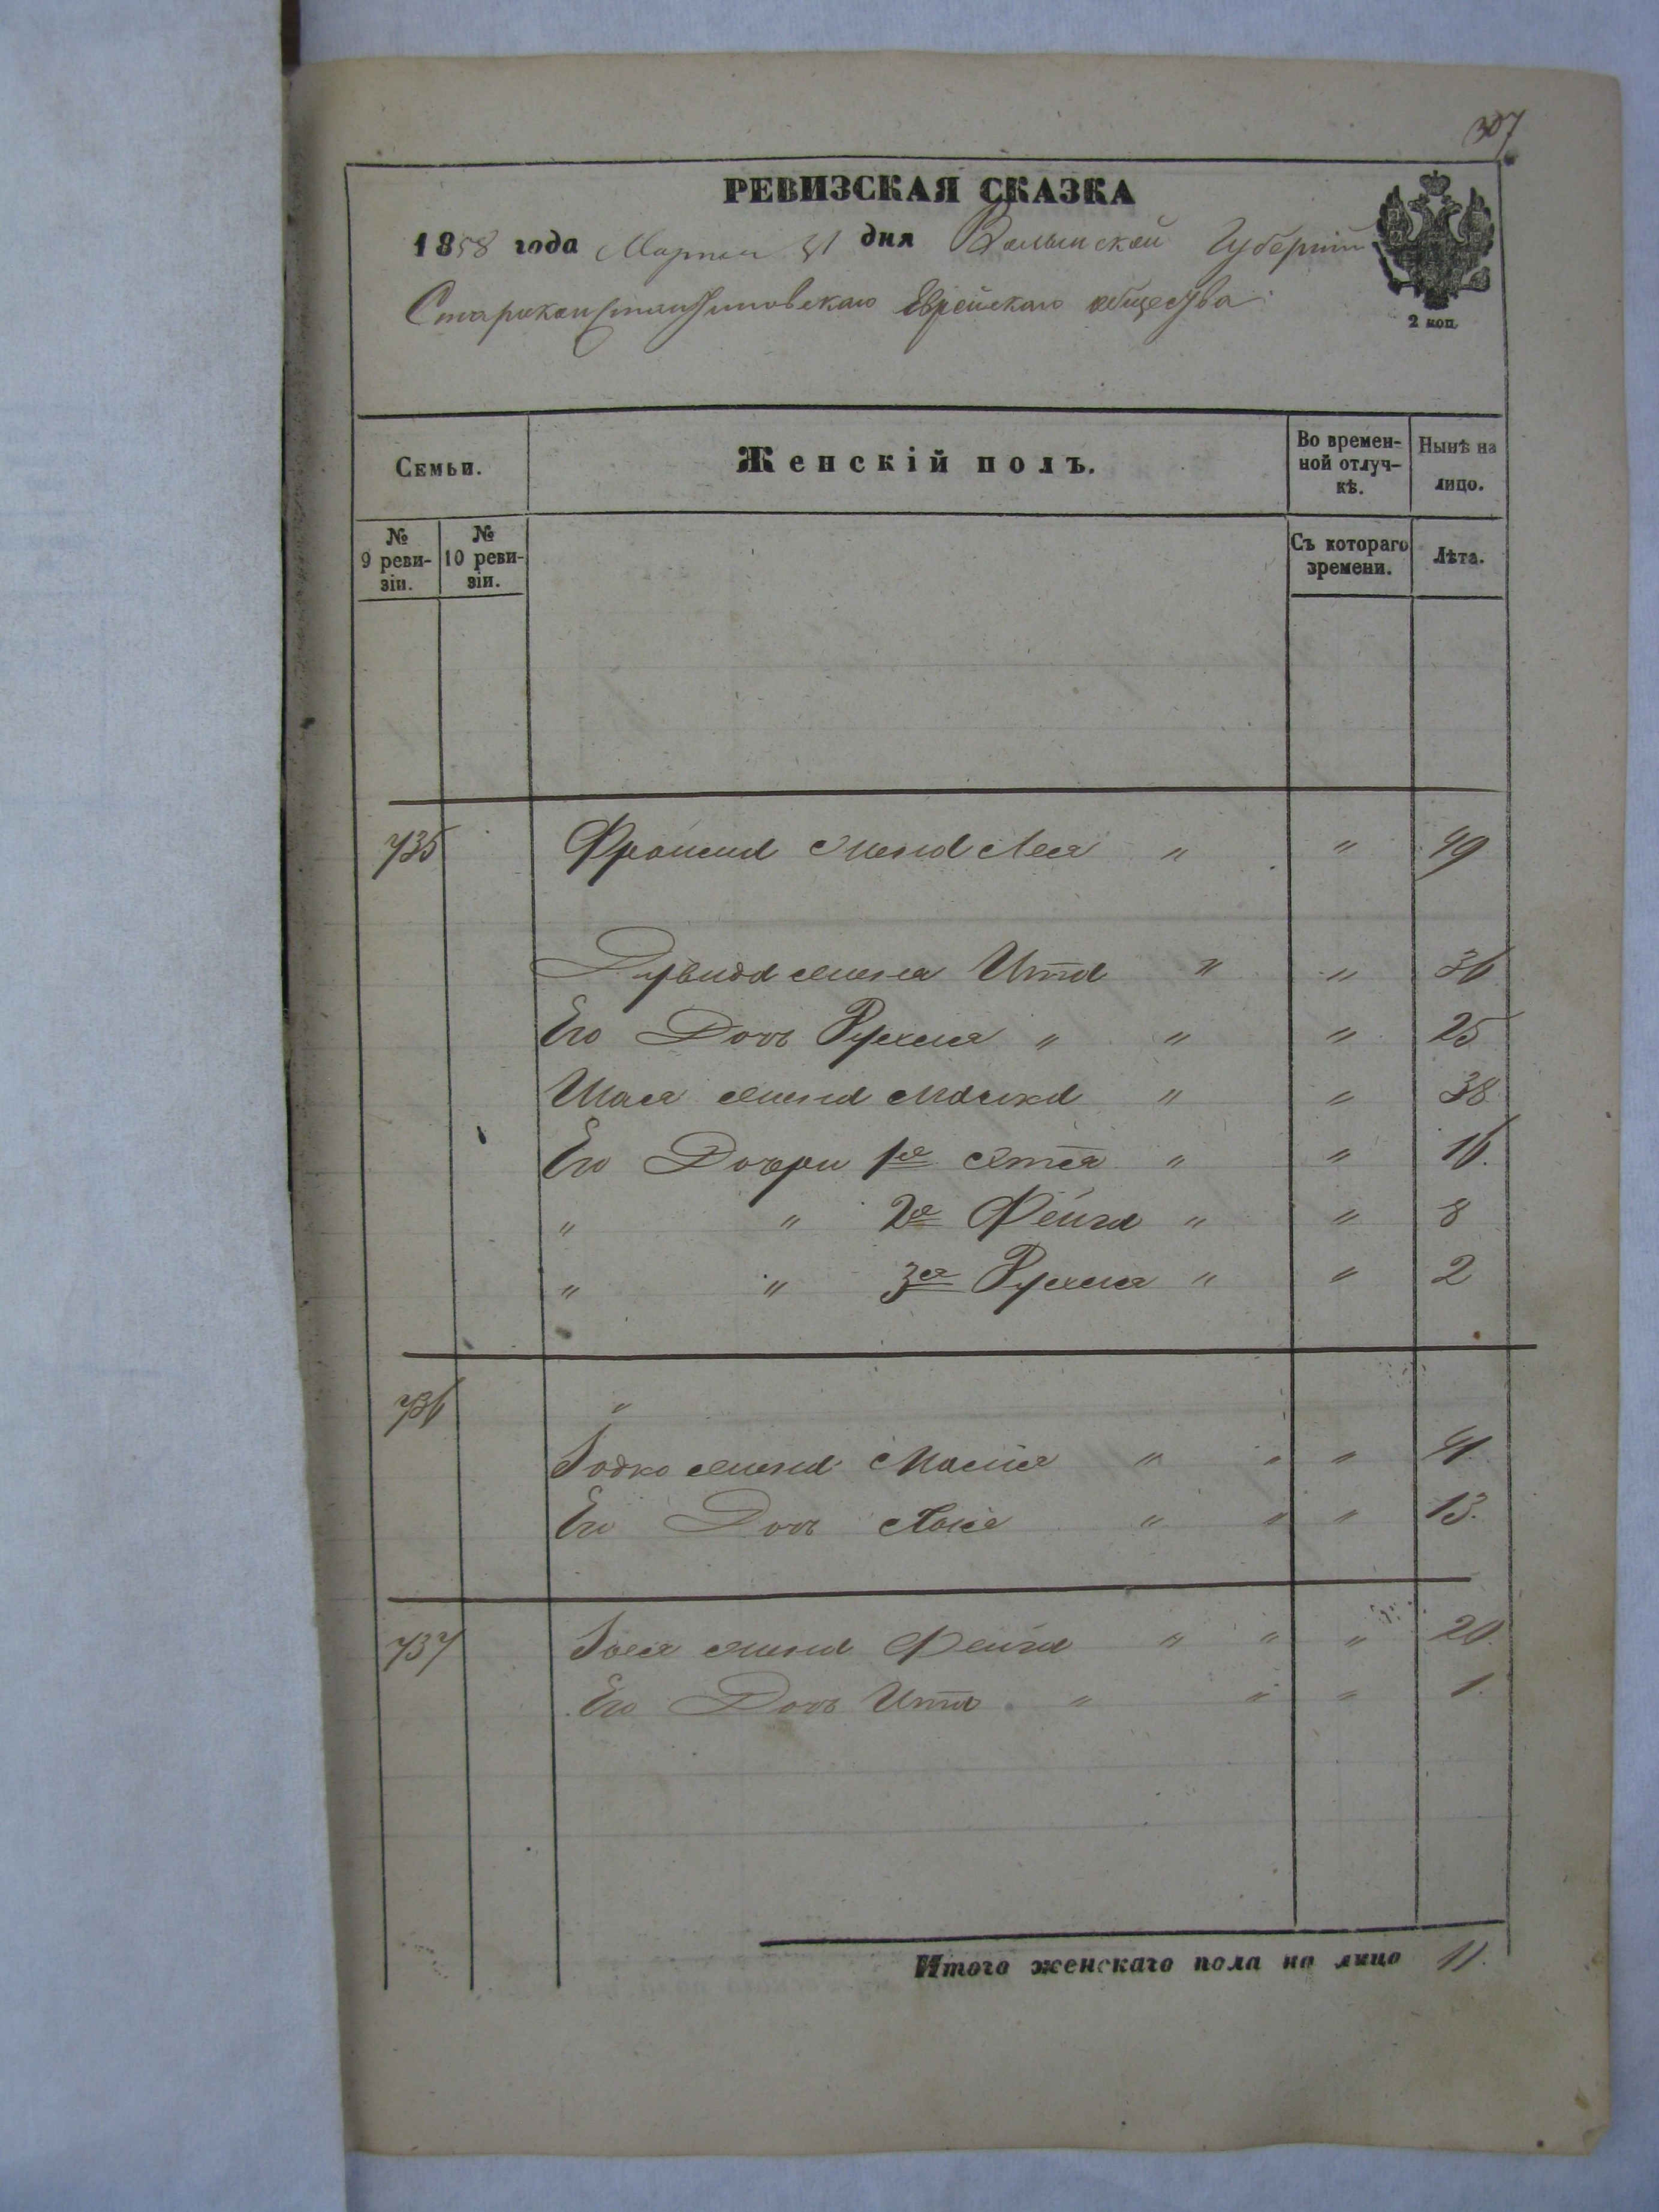 307
РЕВИЗСКАЯ СКАЗКА
1858 года Марта 31 дня Волынской Губерніи
Староконстантиновскаго Еврейскаго общества
2 коп.
Семьи.
Женскій полъ.
Во времен-
ной отлуч-
кѣ.
Нынѣ на
лицо.
№
9 реви-
зіи.
№
10 реви-
зіи.
Съ котораго
времени.
Лѣта.
735 жена Лея " " 49
жена Ита " " 36
Его Дочь Рухля " " " 25
Шая жена " " 38
Его Дочери 1я " " 16.
" " 2я Фейга " " 8
" " 3я Рухля " " 2
736 "
жена " " " 41.
Его Дочь " " " 13.
737 жена Фейга " " " 20.
Его Дочь Ита " " " 1.
Итого женскаго пола на лицо 11.